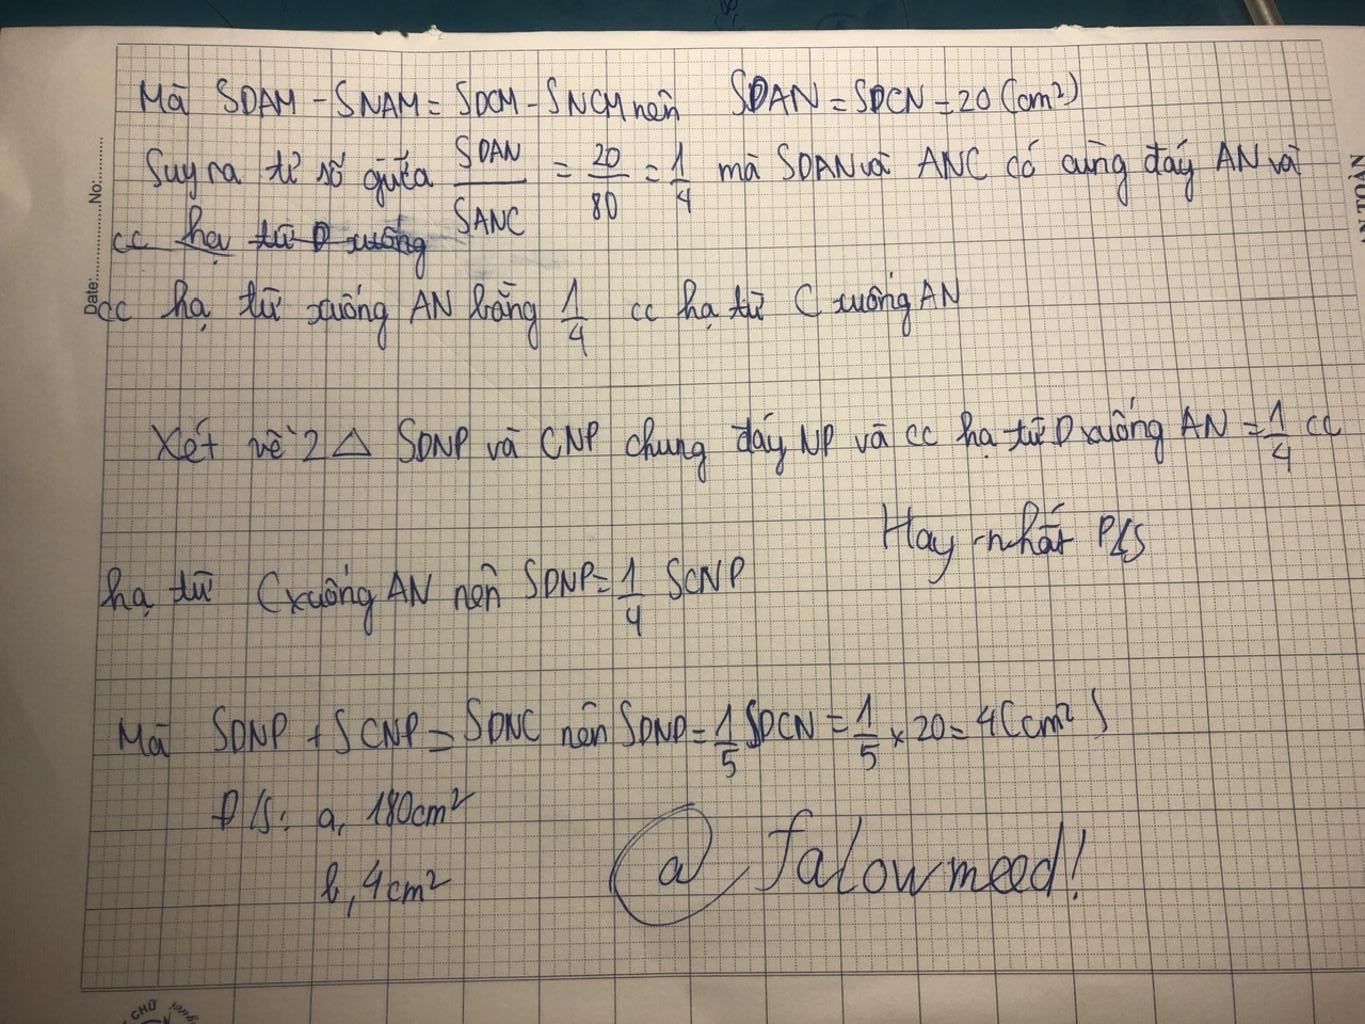 Mà SDAM - SNAM = SDCM - SNCM nên SDAN = SDCN = 20 (cm²)
Suy ra tỉ số giữa SDAN/SANC = 20/80 = 1/4 mà SDAN và ANC có cùng đáy AN và
cc hạ từ D xuống
cc hạ từ xuống AN bằng 1/4 cc hạ từ C xuống AN
Xét về 2 △ SDNP và CNP chung đáy NP và cc hạ từ D xuống AN = 1/4 cc
Hay nhất PLS
hạ từ C xuống AN nên SDNP = 1/4 SCNP
Mà SDNP + SCNP = SDNC nên SDNP = 1/5 SDCN = 1/5 × 20 = 4 (cm²)
Đ/S: a, 180cm²
b, 4cm²
@ falowmeed!
No:
Date:
TOÁN
CHỮ